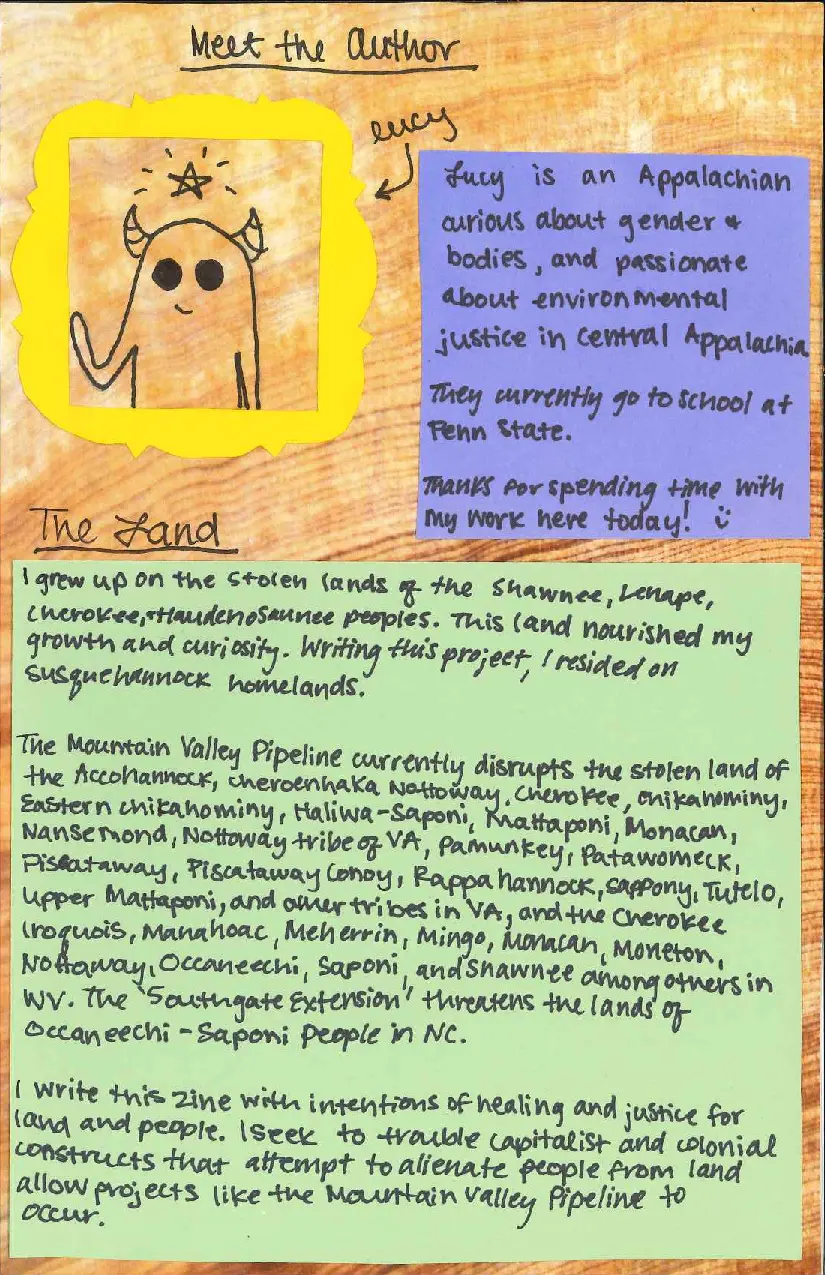 Meet the Author
Lucy
Lucy is an Appalachian
curious about gender &
bodies, and passionate
about environmental
justice in Central Appalachia
They currently go to school at
Penn State.
Thanks for spending time with
my work here today! :)
The Land
I grew up on the stolen lands of the Shawnee, Lenape,
Cherokee, + Haudenosaunee peoples. This land nourished my
growth and curiosity. Writing this project, I resided on
Susquehannock homelands.
The Mountain Valley Pipeline currently disrupts the stolen land of
the Accohannock, Cheroenhaka Nottoway, Cherokee, Chikahominy,
Eastern Chikahominy, Haliwa-Saponi, Mattaponi, Monacan,
Nansemond, Nottoway tribe of VA, Pamunkey, Patawomeck,
Piscataway, Piscataway Conoy, Rappahannock, Sappony, Tutelo,
Upper Mattaponi, and other tribes in VA, and the Cherokee
Iroquois, Manahoac, Meherrin, Mingo, Monacan, Moneton,
Nottaway, Occaneechi, Saponi, and Shawnee among others in
WV. The 'Southgate Extension' threatens the lands of
Occaneechi-Saponi People in NC.
I write this zine with intentions of healing and justice for
land and people. I seek to trouble capitalist and colonial
constructs that attempt to alienate people from land
allow projects like the Mountain Valley Pipeline to
occur.